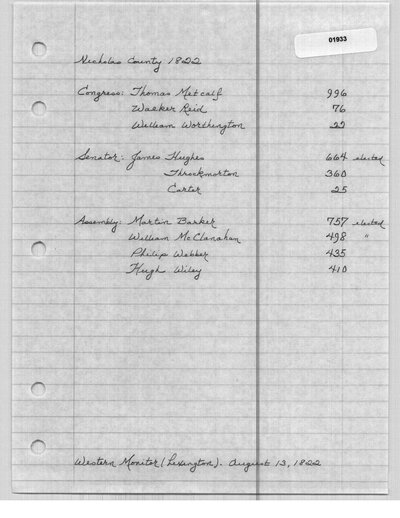 01933
Nicholas County 1822
Congress: Thomas Metcalf 996
Walker Reid 76
William Worthington 22
Senator: James Hughes 664 elected
Throckmorton 360
Carter 25
Assembly: Martin Barker 757 elected
William McClanahan 498 "
Philip Webber 435
Hugh Wiley 410
Western Monitor (Lexington). August 13, 1822